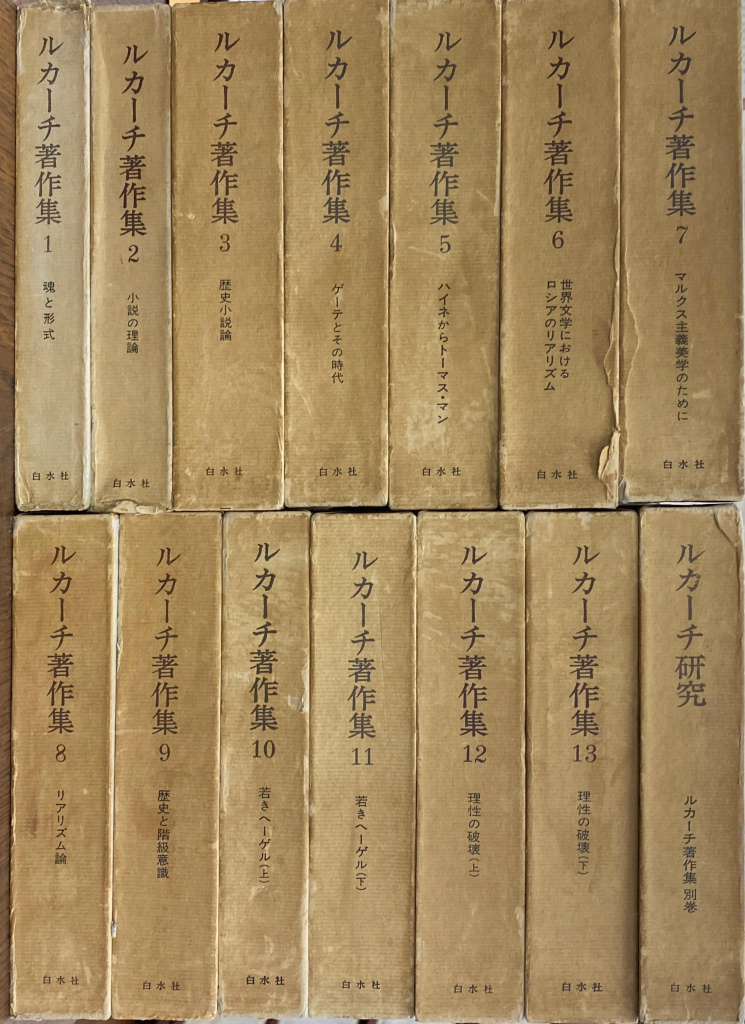 ルカーチ著作集
1
魂と形式
白水社
ルカーチ著作集
2
小説の理論
白水社
ルカーチ著作集
3
歴史小説論
白水社
ルカーチ著作集
4
ゲーテとその時代
白水社
ルカーチ著作集
5
ハイネからトーマス・マン
白水社
ルカーチ著作集
6
世界文学における
ロシアのリアリズム
白水社
ルカーチ著作集
7
マルクス主義美学のために
白水社
ルカーチ著作集
8
リアリズム論
白水社
ルカーチ著作集
9
歴史と階級意識
白水社
ルカーチ著作集
10
若きヘーゲル(上)
白水社
ルカーチ著作集
11
若きヘーゲル(下)
白水社
ルカーチ著作集
12
理性の破壊(上)
白水社
ルカーチ著作集
13
理性の破壊(下)
白水社
ルカーチ研究
ルカーチ著作集 別巻
白水社